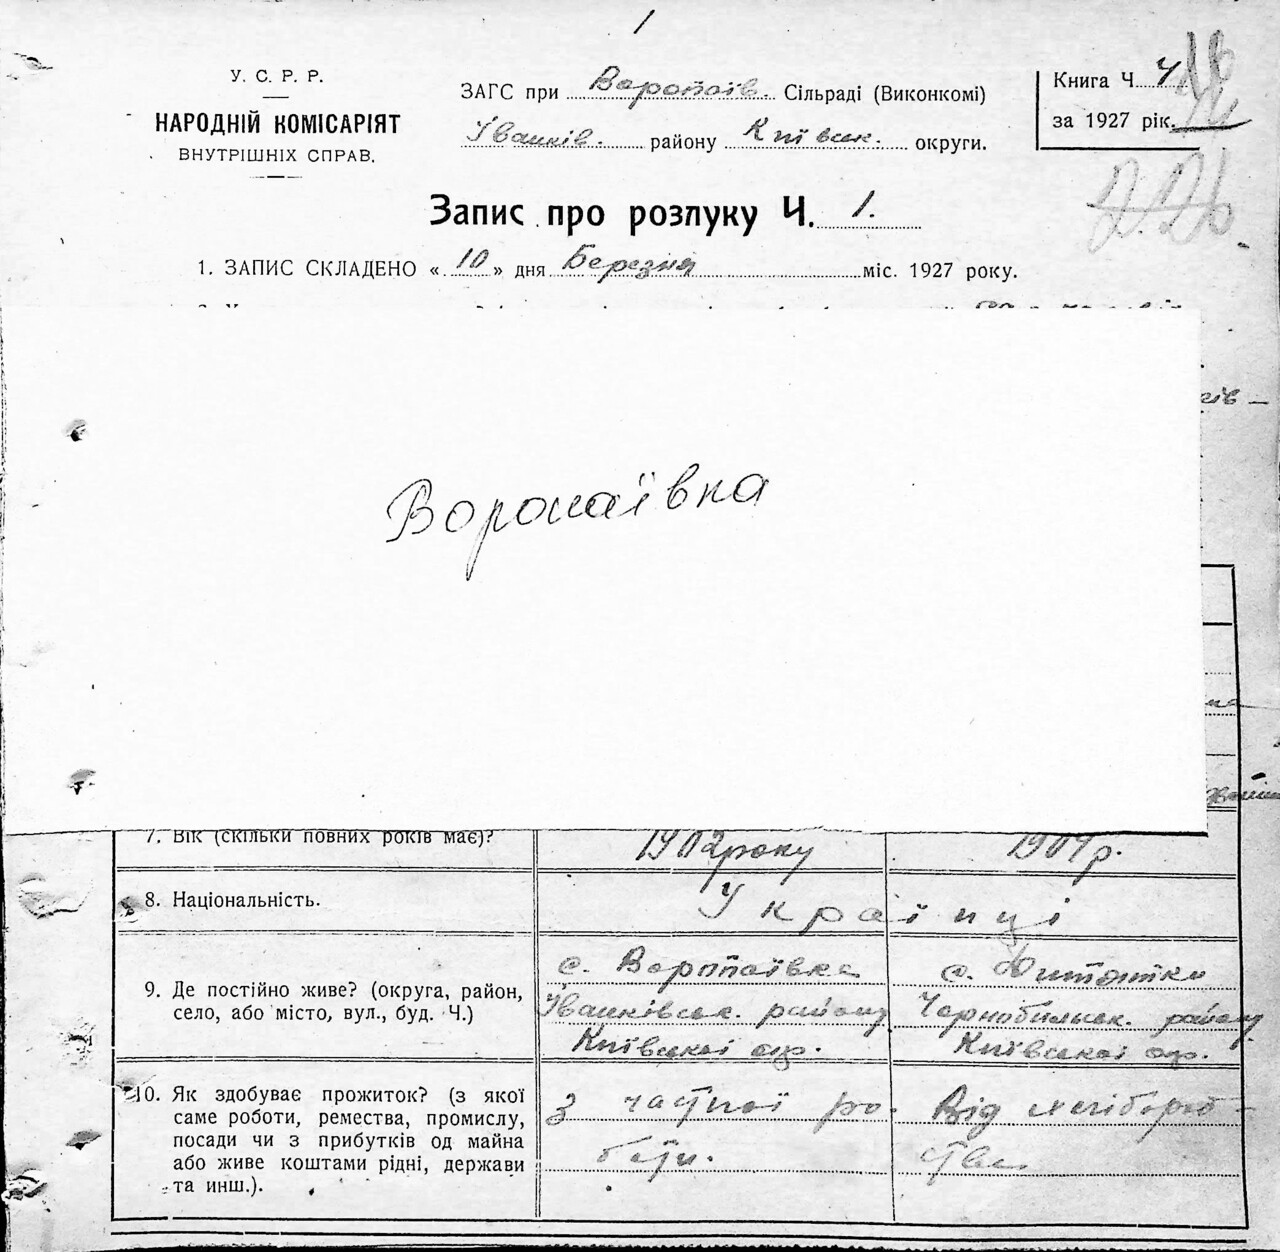 1
У. С. Р. Р.
НАРОДНІЙ КОМІСАРІЯТ
ВНУТРІШНІХ СПРАВ.
ЗАГС при Воропаїв. Сільраді (Виконкомі)
Іванків. району Київськ. округи.
Книга Ч. 4
за 1927 рік.
Запис про розлуку Ч. 1.
1. ЗАПИС СКЛАДЕНО « 10 » дня Березня міс. 1927 року.
Воропаївка
7. Вік (скільки повних років має)?
1902 року
1904 р.
8. Національність.
Українці
9. Де постійно живе? (округа, район,
село, або місто, вул., буд. Ч.)
с. Воропаївка
Іванківськ. району
Київської окр.
с.
Чорнобильськ. району
Київської окр.
10. Як здобуває прожиток? (з якої
саме роботи, ремества, промислу,
посади чи з прибутків од майна
або живе коштами рідні, держави
та инш.).
з частної ро-
боти.
Від хлібороб-
ства